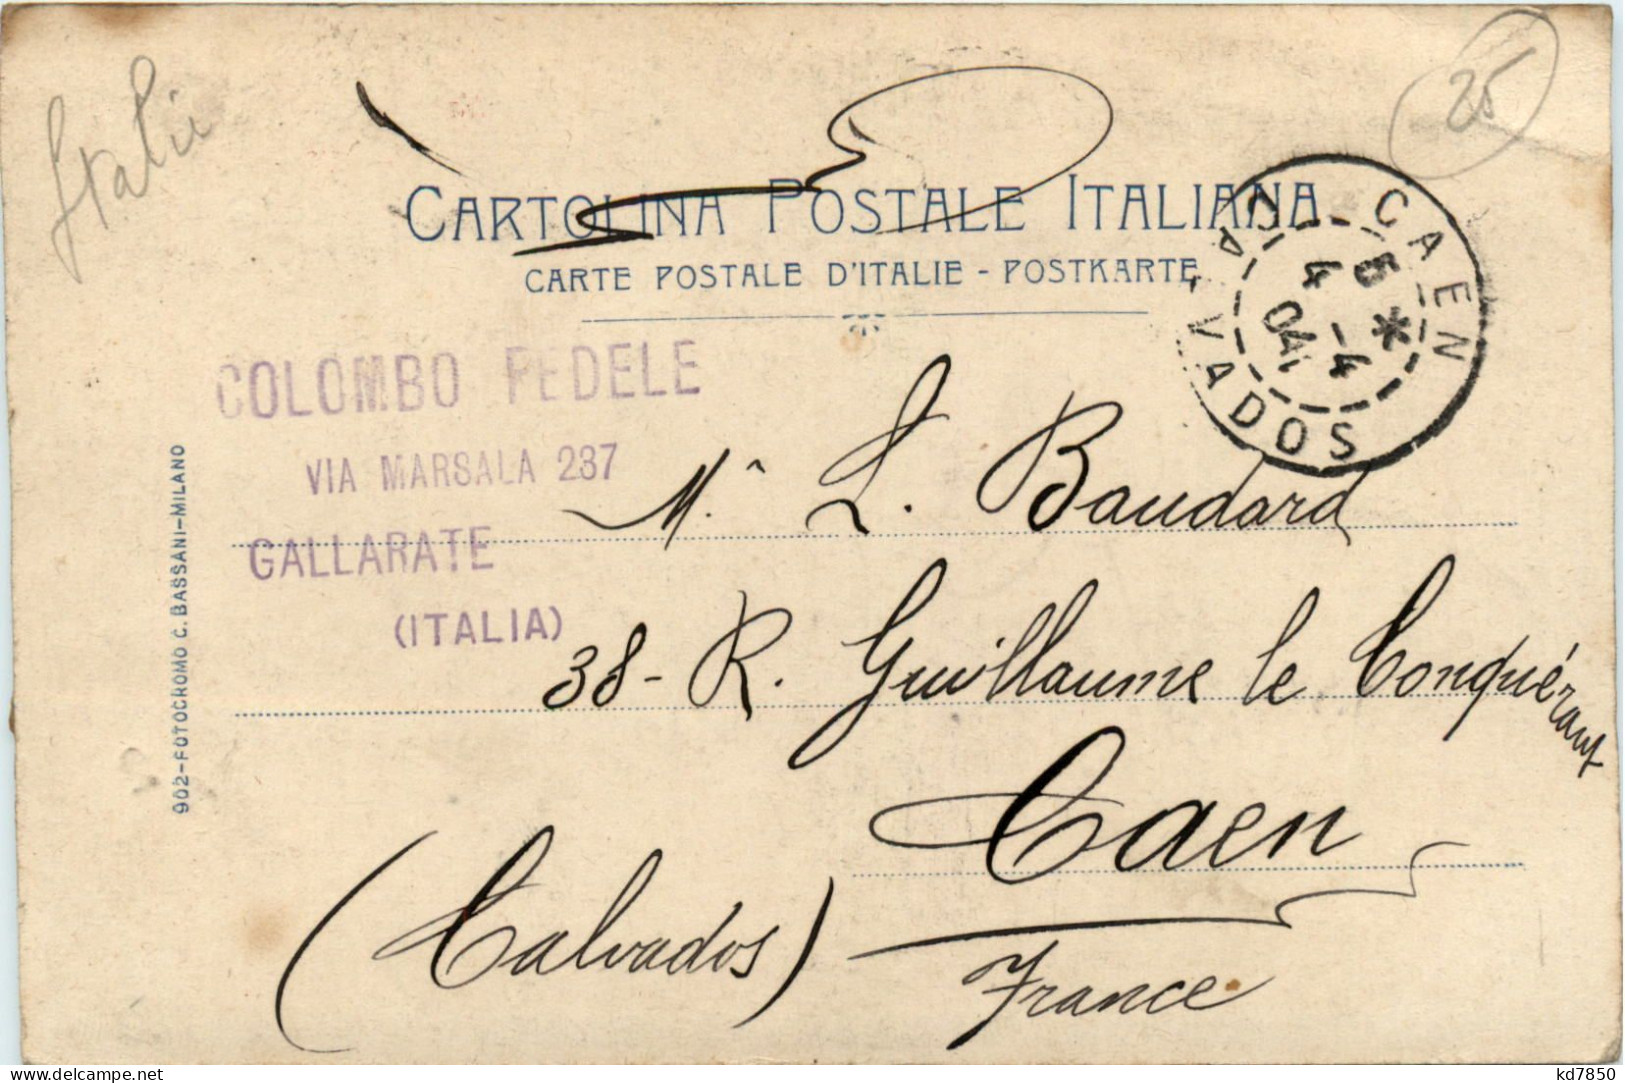 Italie
25
CARTOLINA POSTALE ITALIANA
CARTE POSTALE D'ITALIE - POSTKARTE
CAEN
CALVADOS
5 * 4
4 - 4
04
COLOMBO FEDELE
VIA MARSALA 237
GALLARATE
(ITALIA)
902-FOTOCROMO C. BASSANI-MILANO
Mr. L. Baudard
38 - R. Guillaume le Conquérant
Caen
(Calvados)
France
www.delcampe.net
kd7850